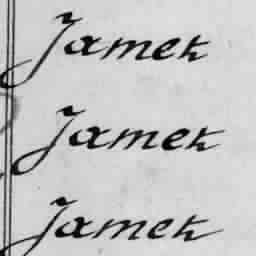 Jamek
Jamek
Jamek